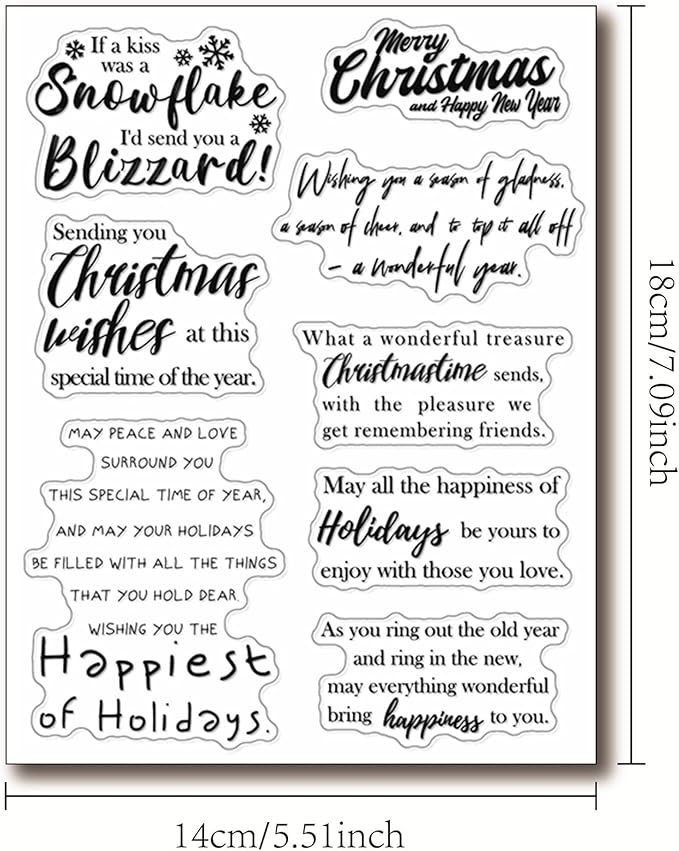 If a kiss
was a
Snowflake
I'd send you a
Blizzard!
Merry
Christmas
and Happy New Year
Wishing you a season of gladness,
a season of cheer, and to top it all off
– a wonderful year.
Sending you
Christmas
wishes at this
special time of the year.
What a wonderful treasure
Christmastime sends,
with the pleasure we
get remembering friends.
MAY PEACE AND LOVE
SURROUND YOU
THIS SPECIAL TIME OF YEAR,
AND MAY YOUR HOLIDAYS
BE FILLED WITH ALL THE THINGS
THAT YOU HOLD DEAR.
WISHING YOU THE
Happiest
of Holidays.
May all the happiness of
Holidays be yours to
enjoy with those you love.
As you ring out the old year
and ring in the new,
may everything wonderful
bring happiness to you.
18cm/7.09inch
14cm/5.51inch